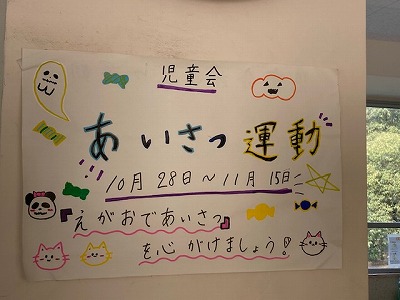 児童会
あいさつ運動
10月28日～11月15日
『えがおであいさつ』
を心がけましょう!